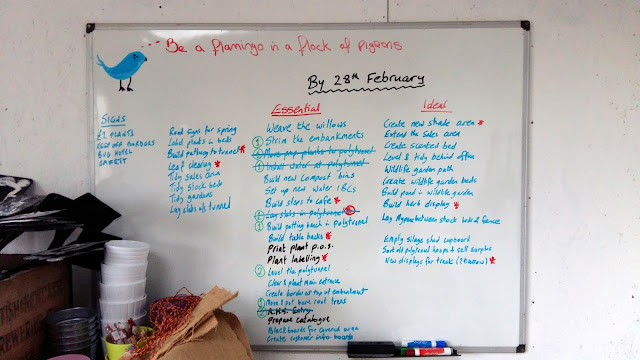 Be a flamingo in a flock of pigeons
By 28th February
SIGNS
£2 PLANTS
KEEP OFF BORDERS
BUG HOTEL
SAFETY
Road Signs for spring
Label plants in beds
Build pathway to tunnel
Leaf clearing
Tidy sales area
Tidy stock beds
Tidy gardens
Lay slabs of tunnel
Essential
Weave the willows
1 Strim the embankments
1 Move pop plants to polytunnel
1 Install water at polytunnel
Build new compost bins
Set up new water IBCs
Build steps to cafe
2 Lay slabs in polytunnel
1 Build potting bench in polytunnel
Build table backs
Print plant p.o.s.
Plant labelling
2 Level the polytunnel
Clear plant main entrance
Create border at top of embankment
1 Move & pot bare root trees
2 R.H.S. Entry
Prepare catalogue
Blackboards for covered area
Create customer info boards
Ideal
Create new shade area
Extend the sales area
Create scented bed
Level & tidy behind office
Wildlife garden path
Create wildlife garden beds
Build pond in wildlife garden
Build herb display
Lay Mypex between stock beds & fence
Empty silage shed cupboard
Sort old polytunnel hoops & sell surplus
New displays for track